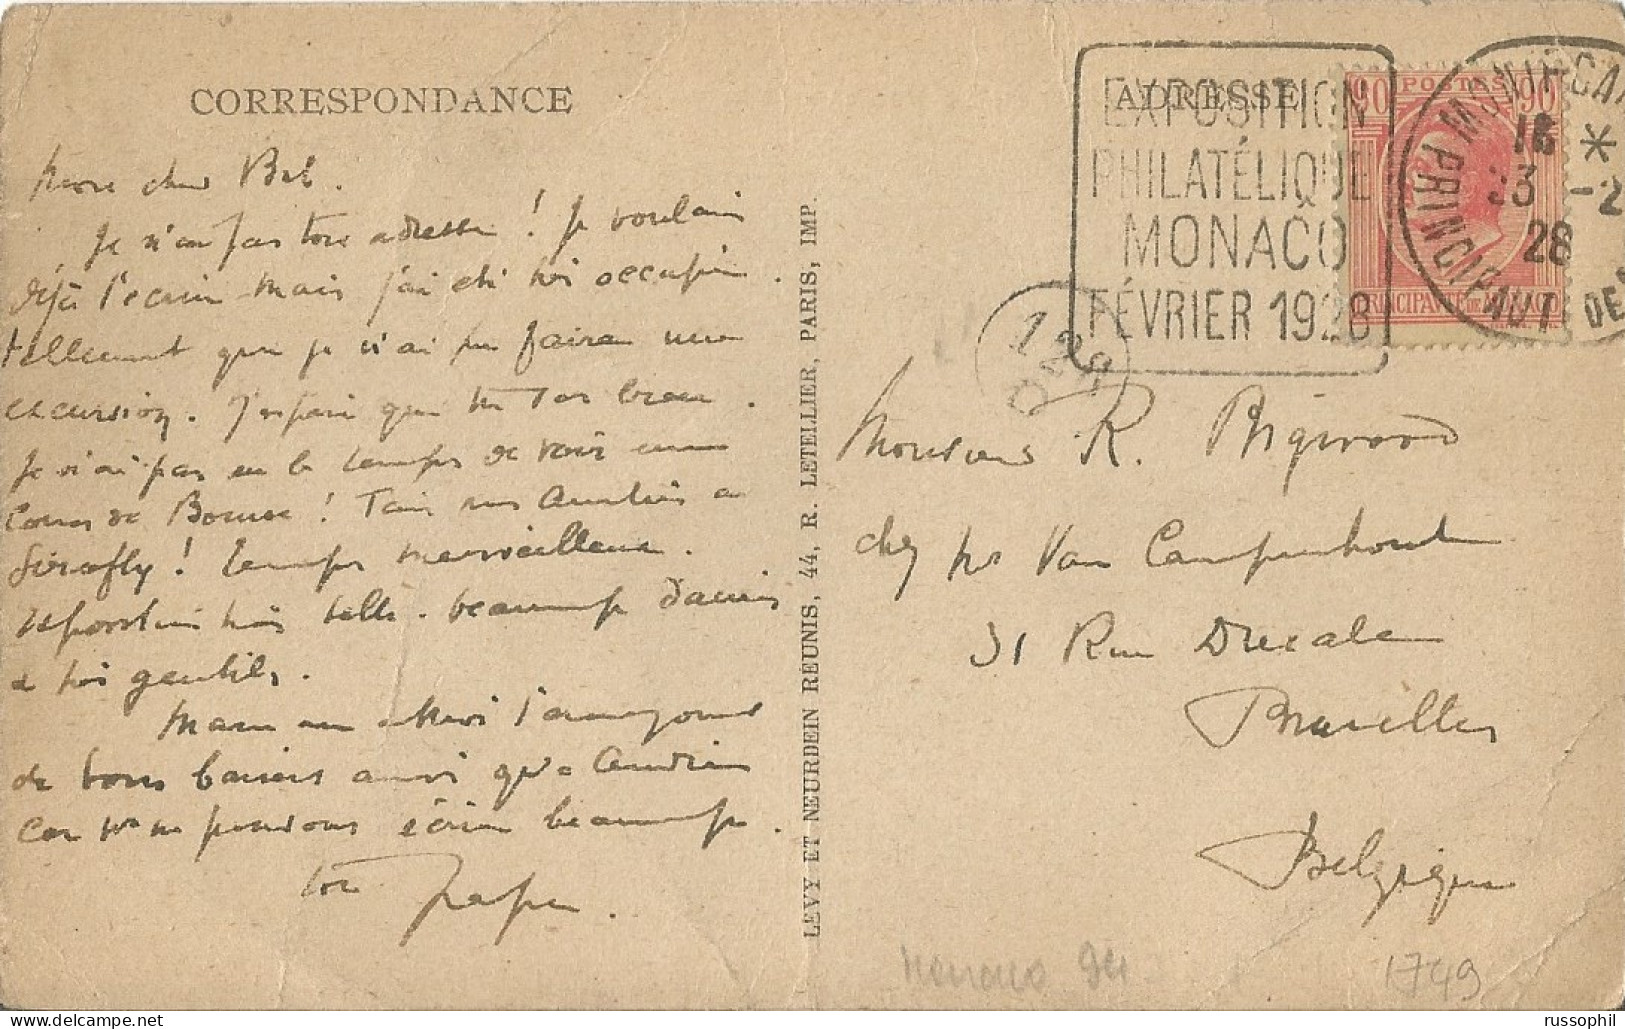 CORRESPONDANCE
Mon cher Bob.
Je n'ai pas ton adresse ! Je voulais
déjà t'écrire mais j'ai été très occupé
tellement que je n'ai pu faire une
excursion. J'espère que tu vas bien.
Je n'ai pas eu le temps de voir un
cours de Bourse !
! Temps merveilleux.
très belle. beaucoup d'amis
et très gentils.
Maman et moi t'envoyons
de bons baisers ainsi qu'a
car ns ne pouvons écrire beaucoup.
ton Papa.
LEVY ET NEURDEIN REUNIS, 44, R. LETELLIER, PARIS, IMP.
ADRESSE
EXPOSITION
PHILATÉLIQUE
MONACO
FÉVRIER 1928
90 POSTES 90
PRINCIPAUTÉ DE MONACO
MONTE-CA
PRINCIPAUT DE
16 *
23 -2
28
Monsieur R. Bigwood
chez Mr Van Campenhout
31 Rue
Bruxelles
Belgique
Monaco 94
1749
www.russophil.com
russophil